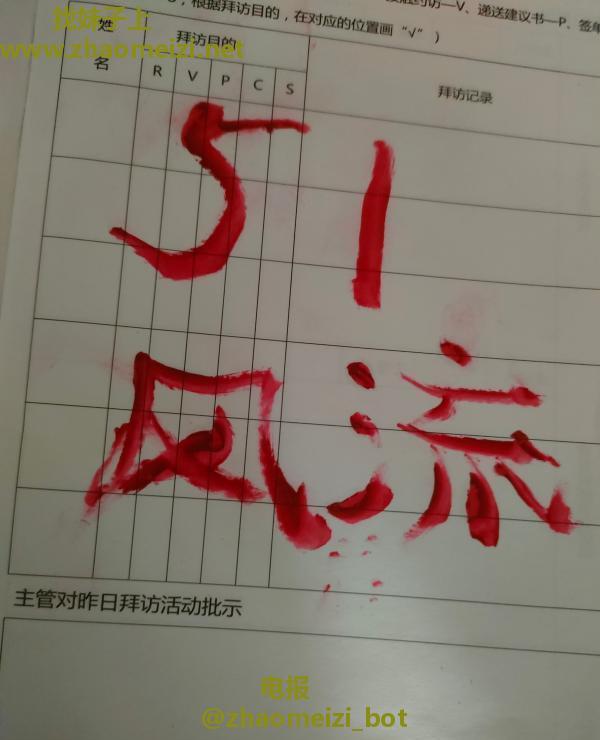 ，根据拜访目的，在对应的位置画“√”）
访—V、递送建议书—P、签单
找妹子上
www.zhaomeizi.net
姓名
拜访目的
R V P C S
拜访记录
51
风流
主管对昨日拜访活动批示
电报
@zhaomeizi_bot